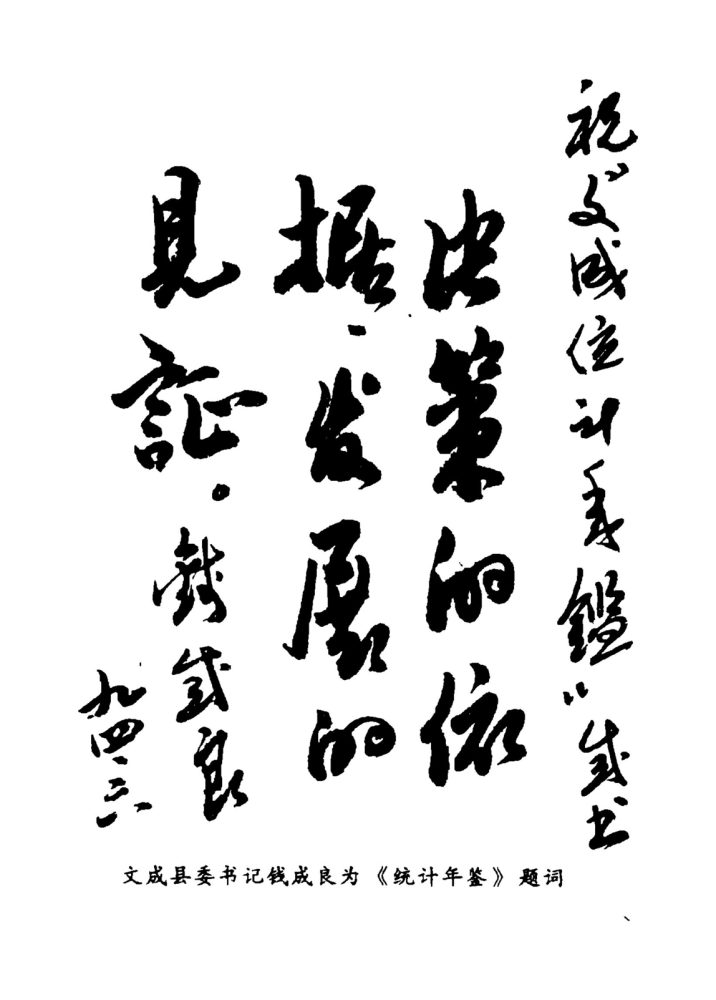 祝"文成统计年鑑"成书
决策的依
据、发展的
見証。
钱成良
九四、六
文成县委书记钱成良为《统计年鉴》题词